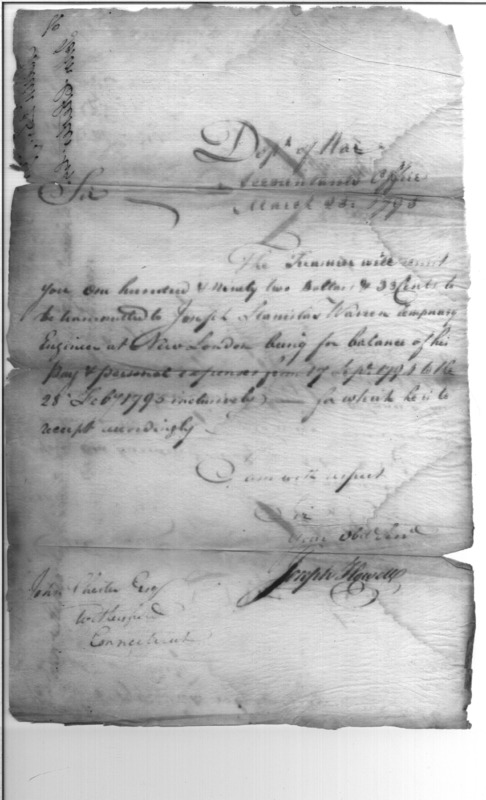 Dept of War
Accountants Office
Sir
March 23d 1795
The Treasurer will remit
you one hundred & Ninety two Dollars & 33 Cents to
be transmitted to Joseph Stanislas Warren temporary
Engineer at New London being for balance of his
Pay & personal expences from 17 Sept 1794 to the
28 Feby 1795 inclusively — for which he is to
receipt accordingly
I am with respect
Sir
your Obt Serv
Joseph Howell
John Chester Esq
Wethersfield
Connecticut